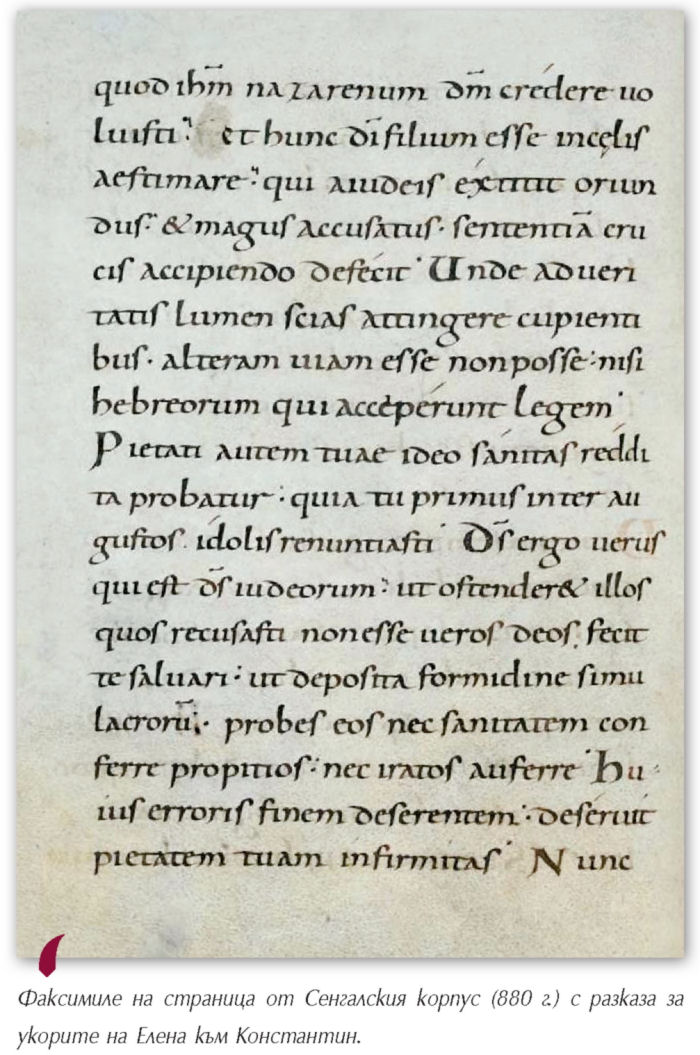 quod ihm̄ nazarenum dm̄ credere uo
luisti et hunc dī filium esse in cęlis
aestimare qui a iudeis extitit oriun
dus & magus accusatus· sententiā cru
cis accipiendo defecit Unde ad ueri
tatis lumen scias attingere cupienti
bus· alteram uiam esse non posse nisi
hebreorum qui acceperunt legem
Pietati autem tuae ideo sanitas reddi
ta probatur quia tu primus inter au
gustos idolis renuntiasti Ds̄ ergo uerus
qui est ds̄ iudeorum ut ostender& illos
quos recusasti non esse ueros deos, fecit
te saluari ut deposita formidine simu
lacrorū probes eos nec sanitatem con
ferre propitios nec iratos auferre hu
ius erroris finem deserentem deseruit
pietatem tuam infirmitas Nunc
Факсимиле на страница от Сенгалския корпус (880 г.) с разказа за
укорите на Елена към Константин.